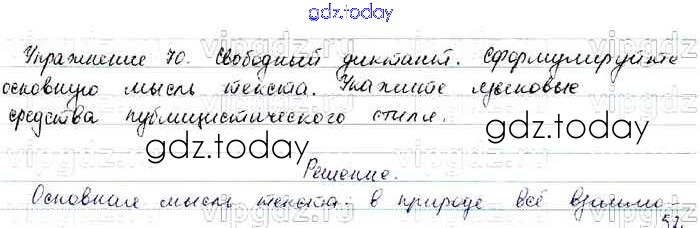 gdz.today
Упражнение 70. Свободный диктант. Сформулируйте
основную мысль текста. Укажите языковые
средства публицистического стиля.
gdz.today
gdz.today
Решение.
Основная мысль текста: в природе всё взаимо-
52.